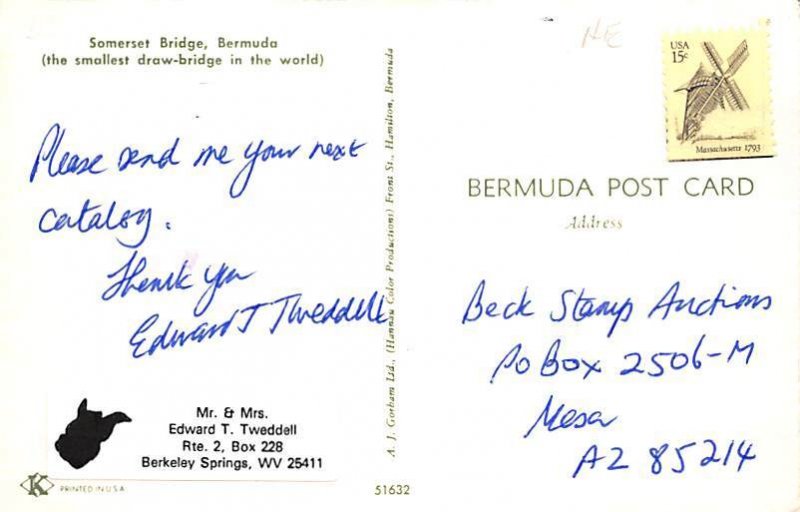 Somerset Bridge, Bermuda
(the smallest draw-bridge in the world)
Please send me your next
catalog.
Thank you
Edward T Tweddell
Mr. & Mrs.
Edward T. Tweddell
Rte. 2, Box 228
Berkeley Springs, WV 25411
K
PRINTED IN U.S.A.
51632
A. J. Gorham Ltd., (Hannau Color Productions) Front St., Hamilton, Bermuda
NE
USA
15c
Massachusetts 1793
BERMUDA POST CARD
Address
Beck Stamp Auctions
PO Box 2506-M
Mesa
AZ 85214